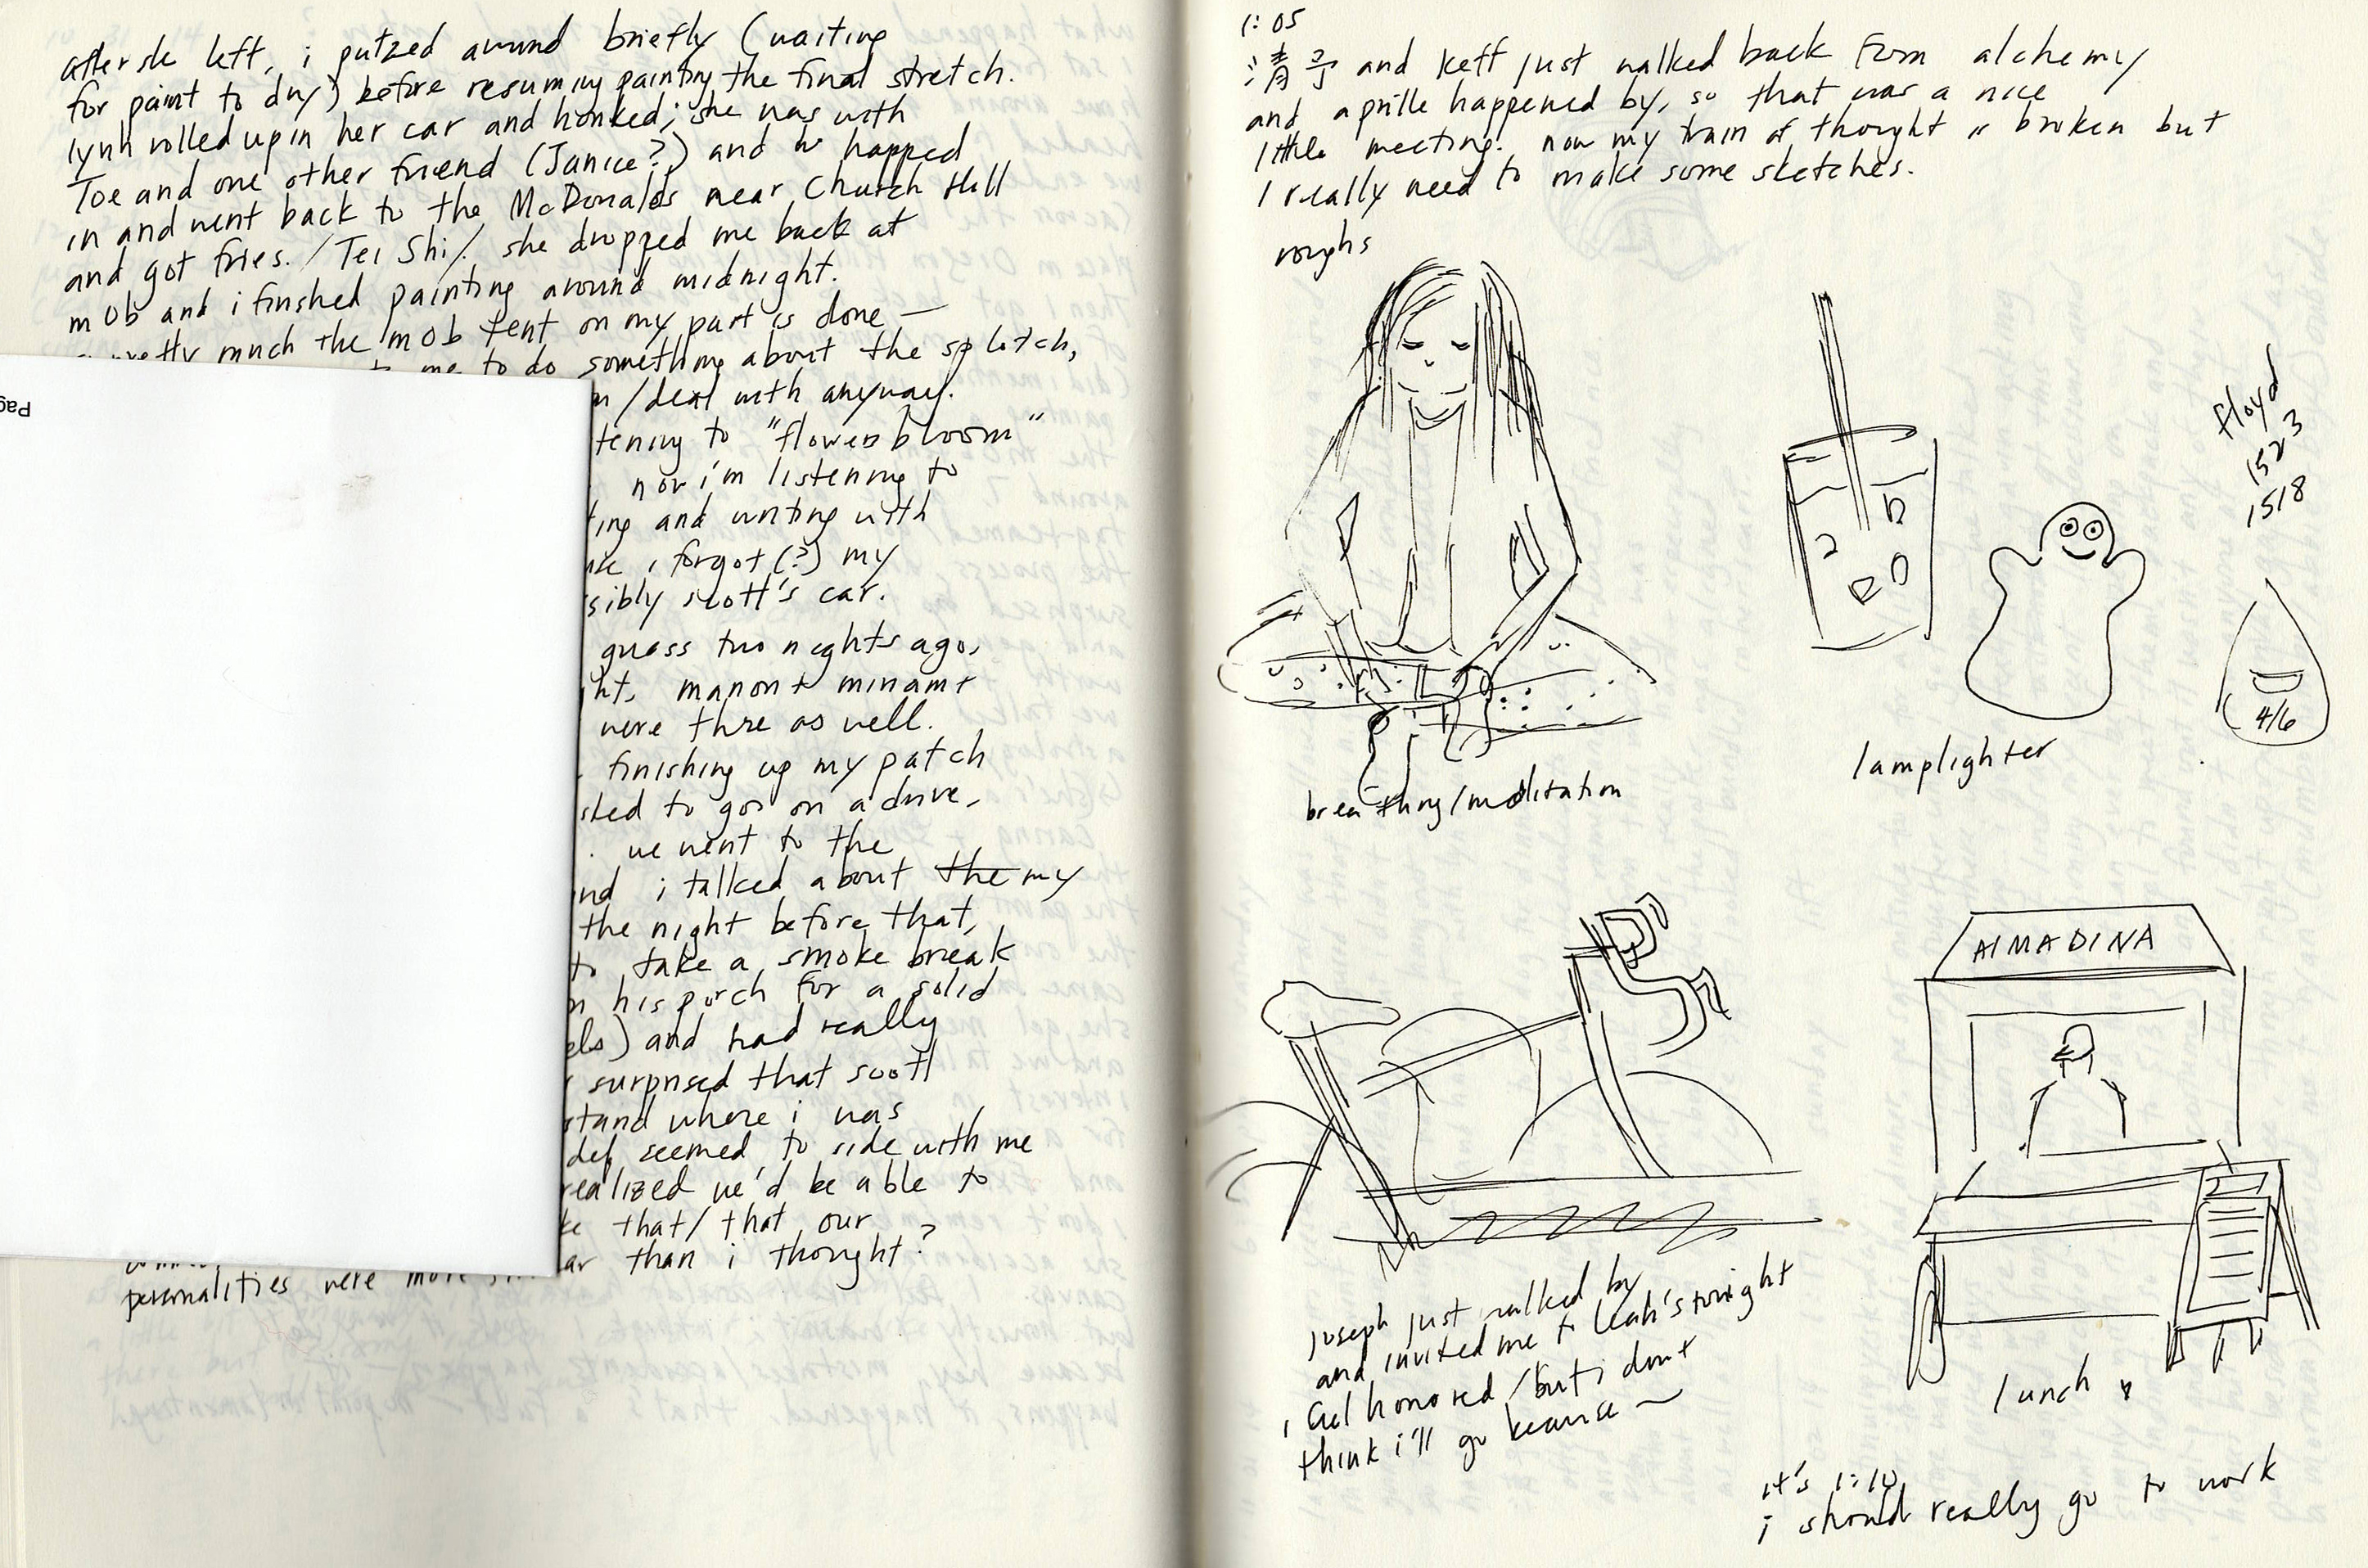 after she left, i putzed around briefly (waiting
for paint to dry) before resuming painting the final stretch.
lynn rolled up in her car and honked; she was with
Toe and one other friend (Janice?) and we happed
in and went back to the McDonalds near Church Hill
and got fries. /Tei Shi/. she dropped me back at
mOb and i finshed painting around midnight.
pretty much the mOb tent on my part is done —
me to do something about the splotch,
/deal with anyway.
tening to "flowers bloom"
now i'm listening to
ting and writing with
i forgot (?) my
sibly scott's car.
guess two nights ago,
ht, manon + minamt
were thre as well.
finishing up my patch
sked to go on a drive,
. we went to the
and i talked about the my
the night before that,
to take a smoke break
n his porch for a solid
els) and had really
surprised that scott
stand where i was
def seemed to side with me
realized we'd be able to
ke that/ that our
personalities were more ar than i thought?
Pag
1:05
清子 and keff just walked back from alchemy
and aprille happened by, so that was a nice
little meeting. now my train of thought is broken but
I really need to make some sketches.
roughs
breathing/meditation
lamplighter
floyd
1523
1518
4/6
AlMADINA
joseph just walked by
and invited me to leah's tonight
i feel honored /but i don't
think i'll go because —
lunch
it's 1:10
i should really go to work